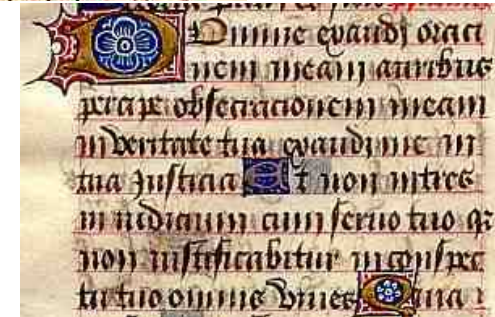 Domine exaudj oraci
onem meam auribus
percipe obsecracionem meam
in veritate tua exaudi me in
tua justicia Et non intres
in iudicium cum seruo tuo q
non iustificabitur in conspec
tu tuo omnis viuens Quia